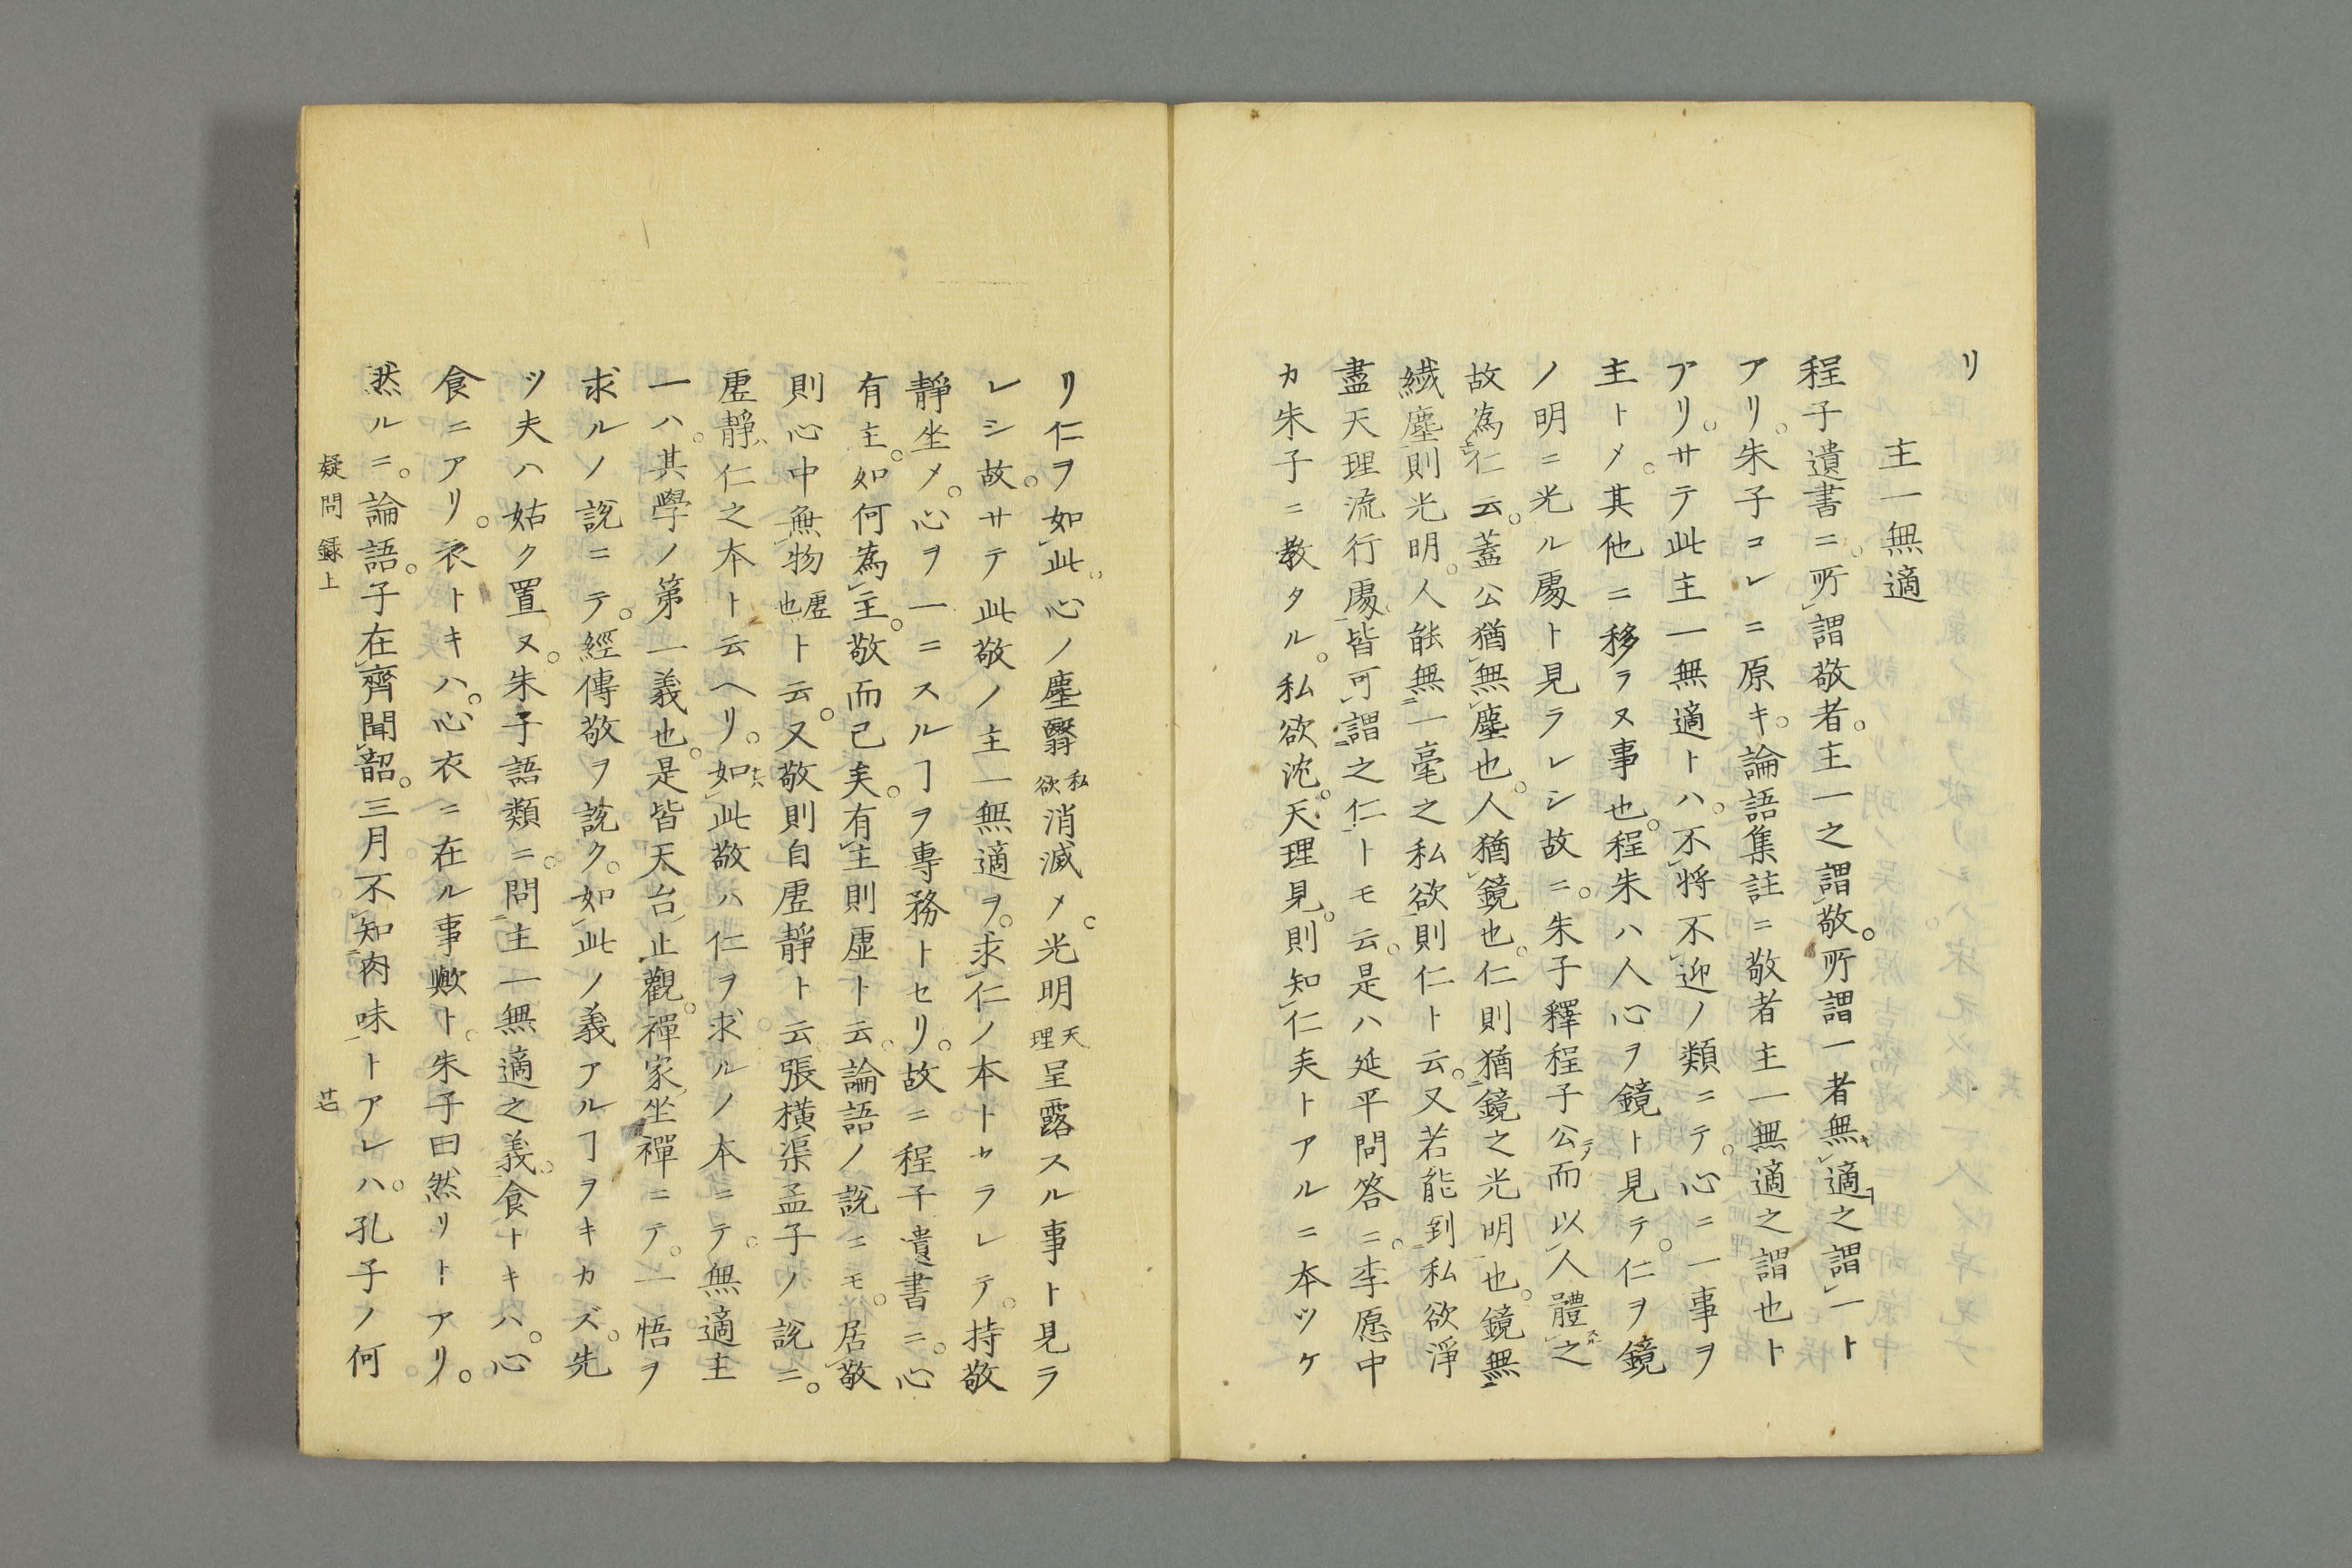 リ
主一無適
程子遺書ニ。所謂敬者。主一之謂敬。所謂一者無適之謂一ト
アリ。朱子コレニ原キ。論語集註ニ敬者主一無適之謂也ト
アリ。サテ此主一無適トハ。不将不迎ノ類ニテ。心ニ一事ヲ
主トメ。其他ニ移ラヌ事也。程朱ハ人心ヲ鏡ト見テ。仁ヲ鏡
ノ明ニ光ル處ト見ラレシ故ニ。朱子釋程子公而以人體之
故為仁云。蓋公猶無塵也。人猶鏡也。仁則猶鏡之光明也。鏡無
纎塵則光明。人能無一毫之私欲則仁ト云。又若能到私欲淨
盡天理流行處。皆可謂之仁トモ云。是ハ延平問答ニ。李愿中
カ朱子ニ教タル。私欲沈。天理見。則知仁矣トアルニ本ツケ
リ仁ヲ如此。心ノ塵翳私欲消滅メ。光明天理呈露スル事ト見ラ
レシ故。サテ此敬ノ主一無適ヲ。求仁ノ本トセラレテ。持敬
靜坐メ。心ヲ一ニスルヿヲ專務トセリ。故ニ程子遺書ニ。心
有主。如何為主。敬而已矣。有主則虛ト云。論語ノ說ニモ。居敬
則心中無物虛也ト云。又敬則自虛靜ト云張橫渠孟子ノ說ニ。
虛靜ハ仁之本ト云ヘリ。如此敬ハ仁ヲ求ルノ本ニテ。無適主
一ハ。其學ノ第一義也。是皆天台止觀。禪家坐禪ニテ。一悟ヲ
求ルノ說ニテ。經傳敬ヲ說ク。如此ノ義アルヿヲキカズ。先
ツ夫ハ姑ク置ヌ。朱子語類ニ。問主一無適之義。食トキハ。心
食ニアリ。衣トキハ。心衣ニ在ル事歟ト。朱子曰然リトアリ。
然ルニ。論語。子在齊聞韶。三月不知肉味トアレハ。孔子ノ何
疑問録上
廿七